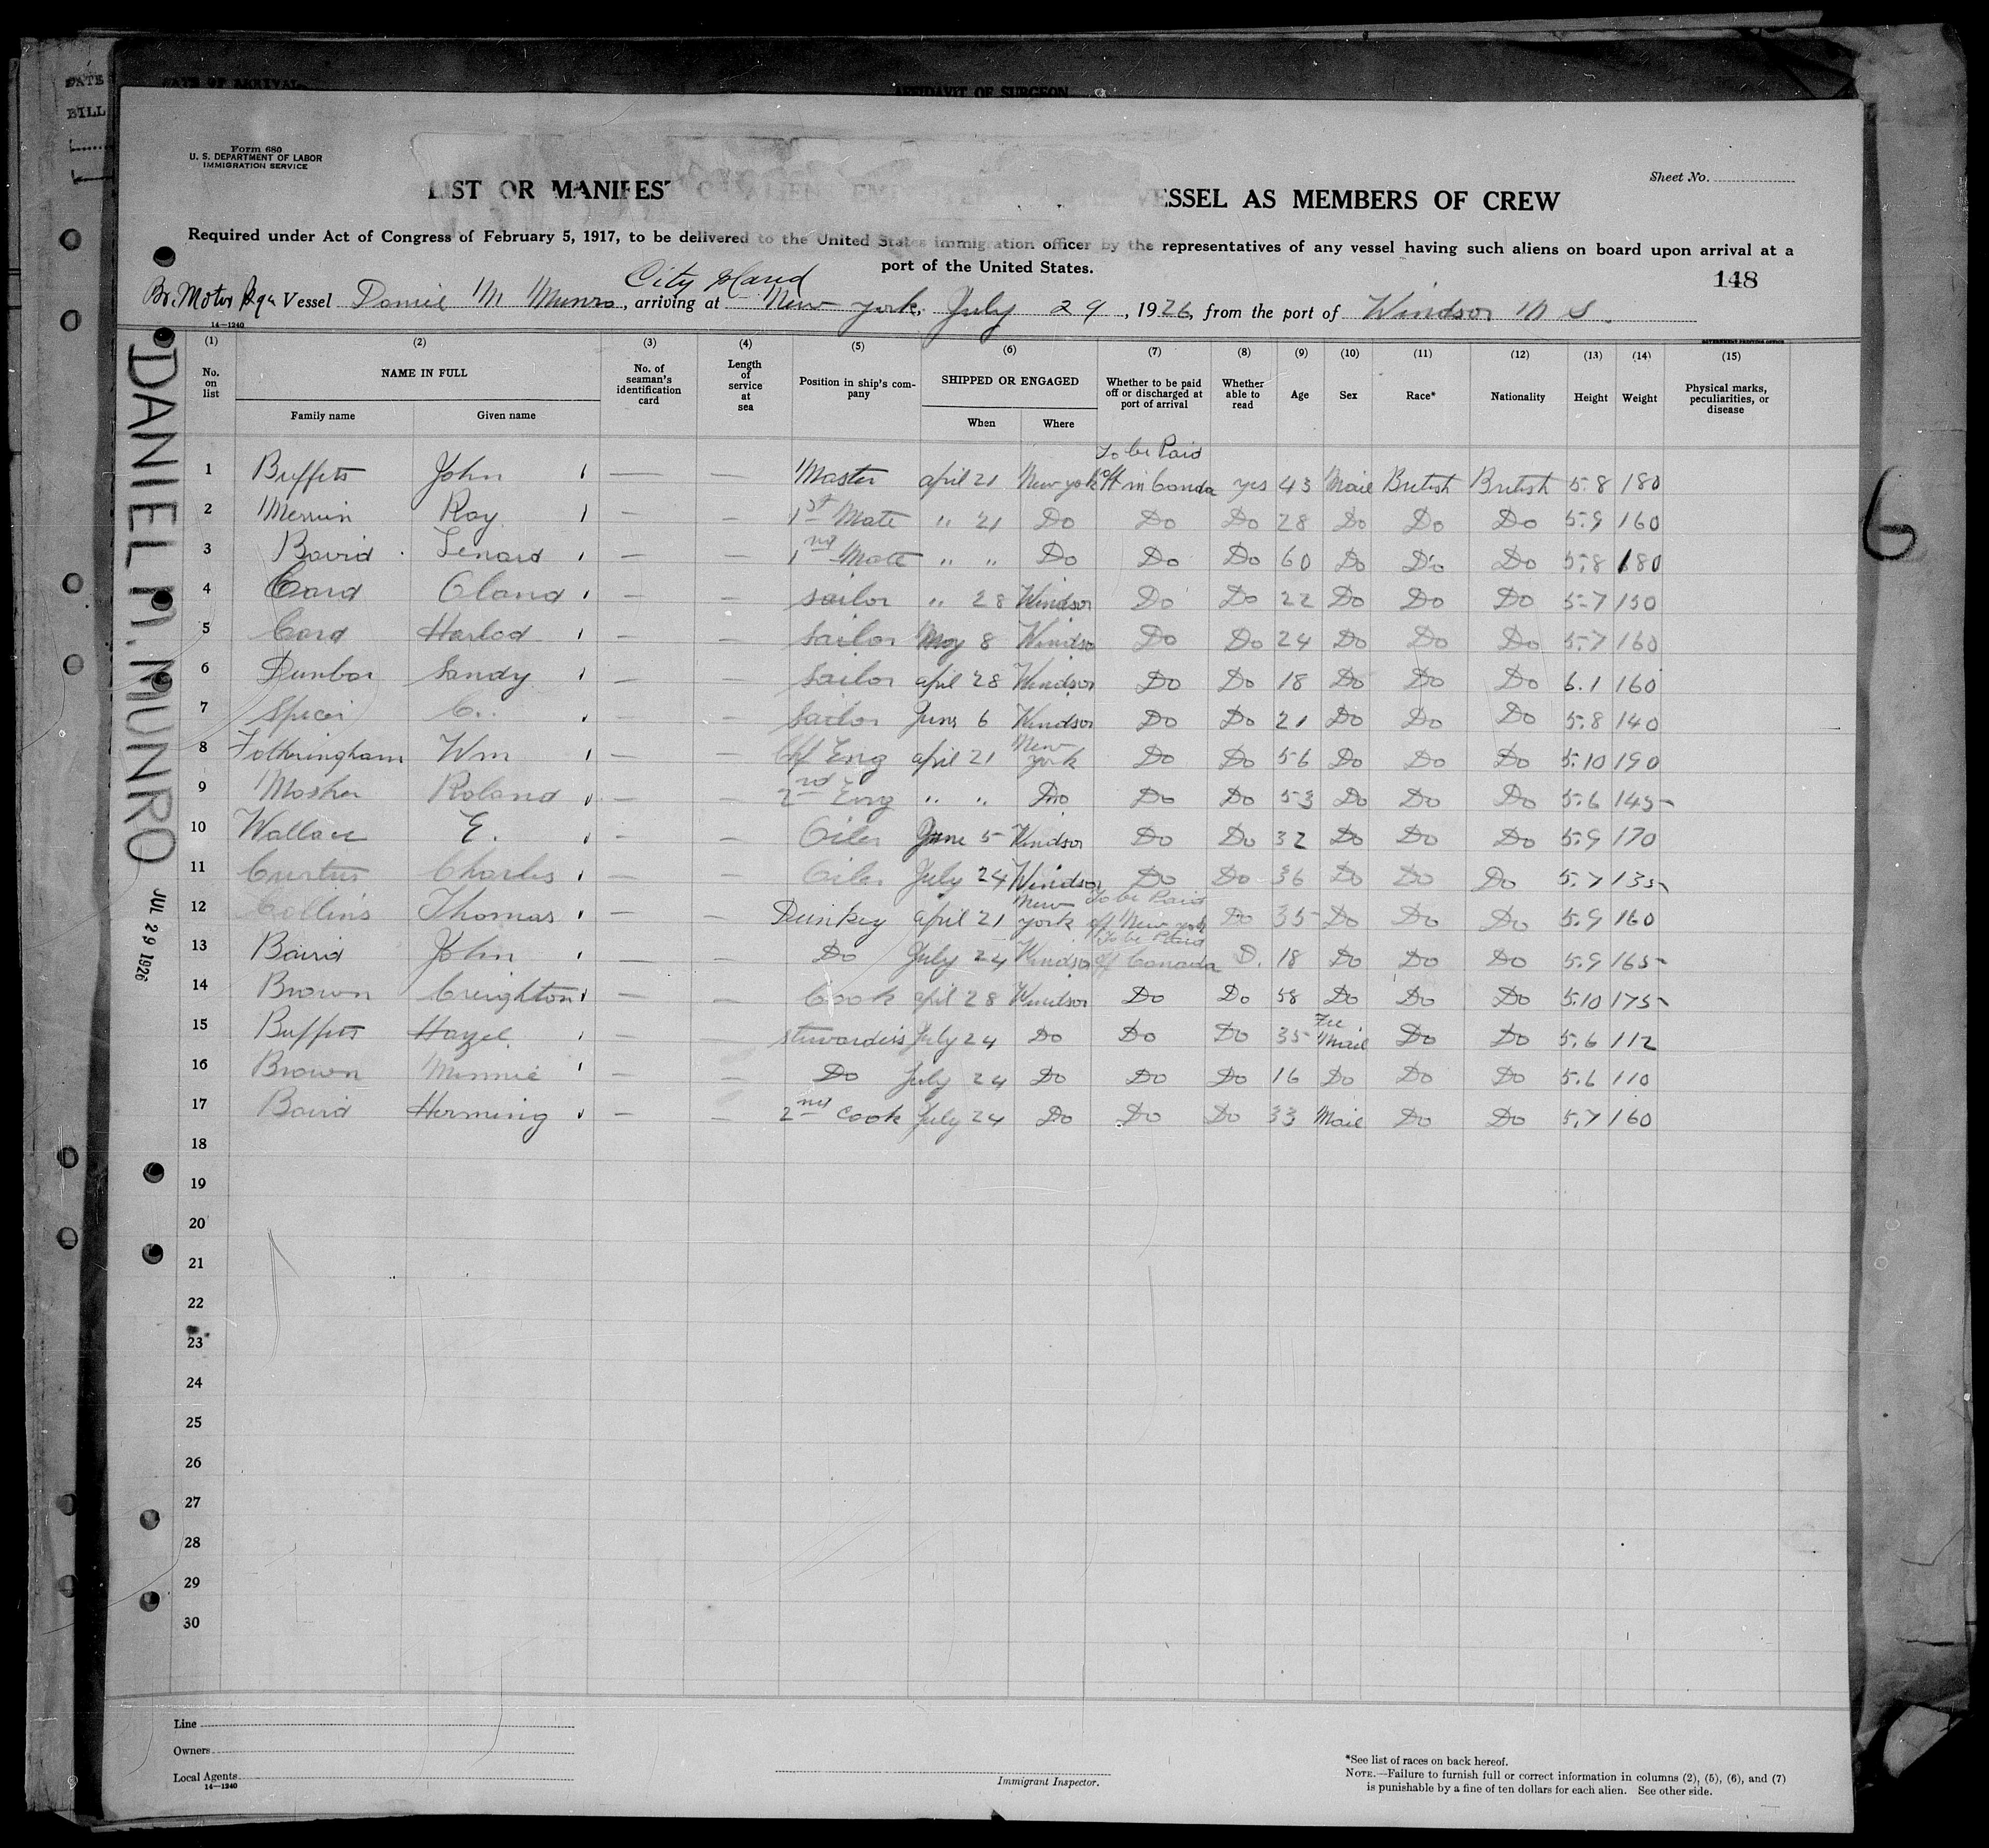 DATE
BILL
DATE OF ARRIVAL
AFFIDAVIT OF SURGEON
Form 680
U. S. DEPARTMENT OF LABOR
IMMIGRATION SERVICE
Sheet No.
LIST OR MANIFEST OF ALIENS EMPLOYED VESSEL AS MEMBERS OF CREW
Required under Act of Congress of February 5, 1917, to be delivered to the United States immigration officer by the representatives of any vessel having such aliens on board upon arrival at a
port of the United States.
148
City Island
Br. Motor Vessel Daniel M Munro, arriving at New york, July 29, 1926, from the port of Windsor N S.
14—1240
GOVERNMENT PRINTING OFFICE
(1) (2) (3) (4) (5) (6) (7) (8) (9) (10) (11) (12) (13) (14) (15)
No. on list NAME IN FULL No. of seaman's identification card Length of service at sea Position in ship's company SHIPPED OR ENGAGED Whether to be paid off or discharged at port of arrival Whether able to read Age Sex Race* Nationality Height Weight Physical marks, peculiarities, or disease
Family name Given name When Where
To be Paid
1 Buffets John — — Master april 21 New york off in Canda yes 43 Mail British British 5.8 180
2 Merrin Roy — — 1st Mate " 21 Do Do Do 28 Do Do Do 5.9 160
3 Bavid Lenard — — 1nd Mate " " Do Do Do 60 Do Do Do 5.8 180
4 Card Cland — — Sailor " 28 Windsor Do Do 22 Do Do Do 5.7 150
5 Card Harlod — — Sailor May 8 Windsor Do Do 24 Do Do Do 5.7 160
6 Dunbar Sandy — — Sailor april 28 Windsor Do Do 18 Do Do Do 6.1 160
7 Spicer C. — — Sailor June 6 Windsor Do Do 21 Do Do Do 5.8 140
8 Fotheringham Wm — — Chf Eng april 21 New york Do Do 56 Do Do Do 5.10 190
9 Mosher Roland — — 2nd Eng " " Do Do Do 53 Do Do Do 5.6 145
10 Wallace E. — — Oiler June 5 Windsor Do Do 32 Do Do Do 5.9 170
11 Curtus Charles — — Oiler July 24 Windsor Do Do 36 Do Do Do 5.7 135
12 Collins Thomas — — Dunkey april 21 New york To be Paid off New york Do 35 Do Do Do 5.9 160
13 Baird John — — Do July 24 Windsor To be Paid off Canada D. 18 Do Do Do 5.9 165
14 Brown Creighton — — Cook april 28 Windsor Do Do 58 Do Do Do 5.10 175
15 Buffets Hazel — — Stwardeis July 24 Do Do Do 35 Fee Mail Do Do 5.6 112
16 Brown Minnie — — Do July 24 Do Do Do 16 Do Do Do 5.6 110
17 Baird Herming — — 2nd Cook July 24 Do Do Do 33 Mail Do Do 5.7 160
18
19
20
21
22
23
24
25
26
27
28
29
30
DANIEL M. MUNRO
JUL 29 1926
6
Line
Owners
Local Agents
14—1240
Immigrant Inspector.
*See list of races on back hereof.
NOTE.—Failure to furnish full or correct information in columns (2), (5), (6), and (7)
is punishable by a fine of ten dollars for each alien. See other side.